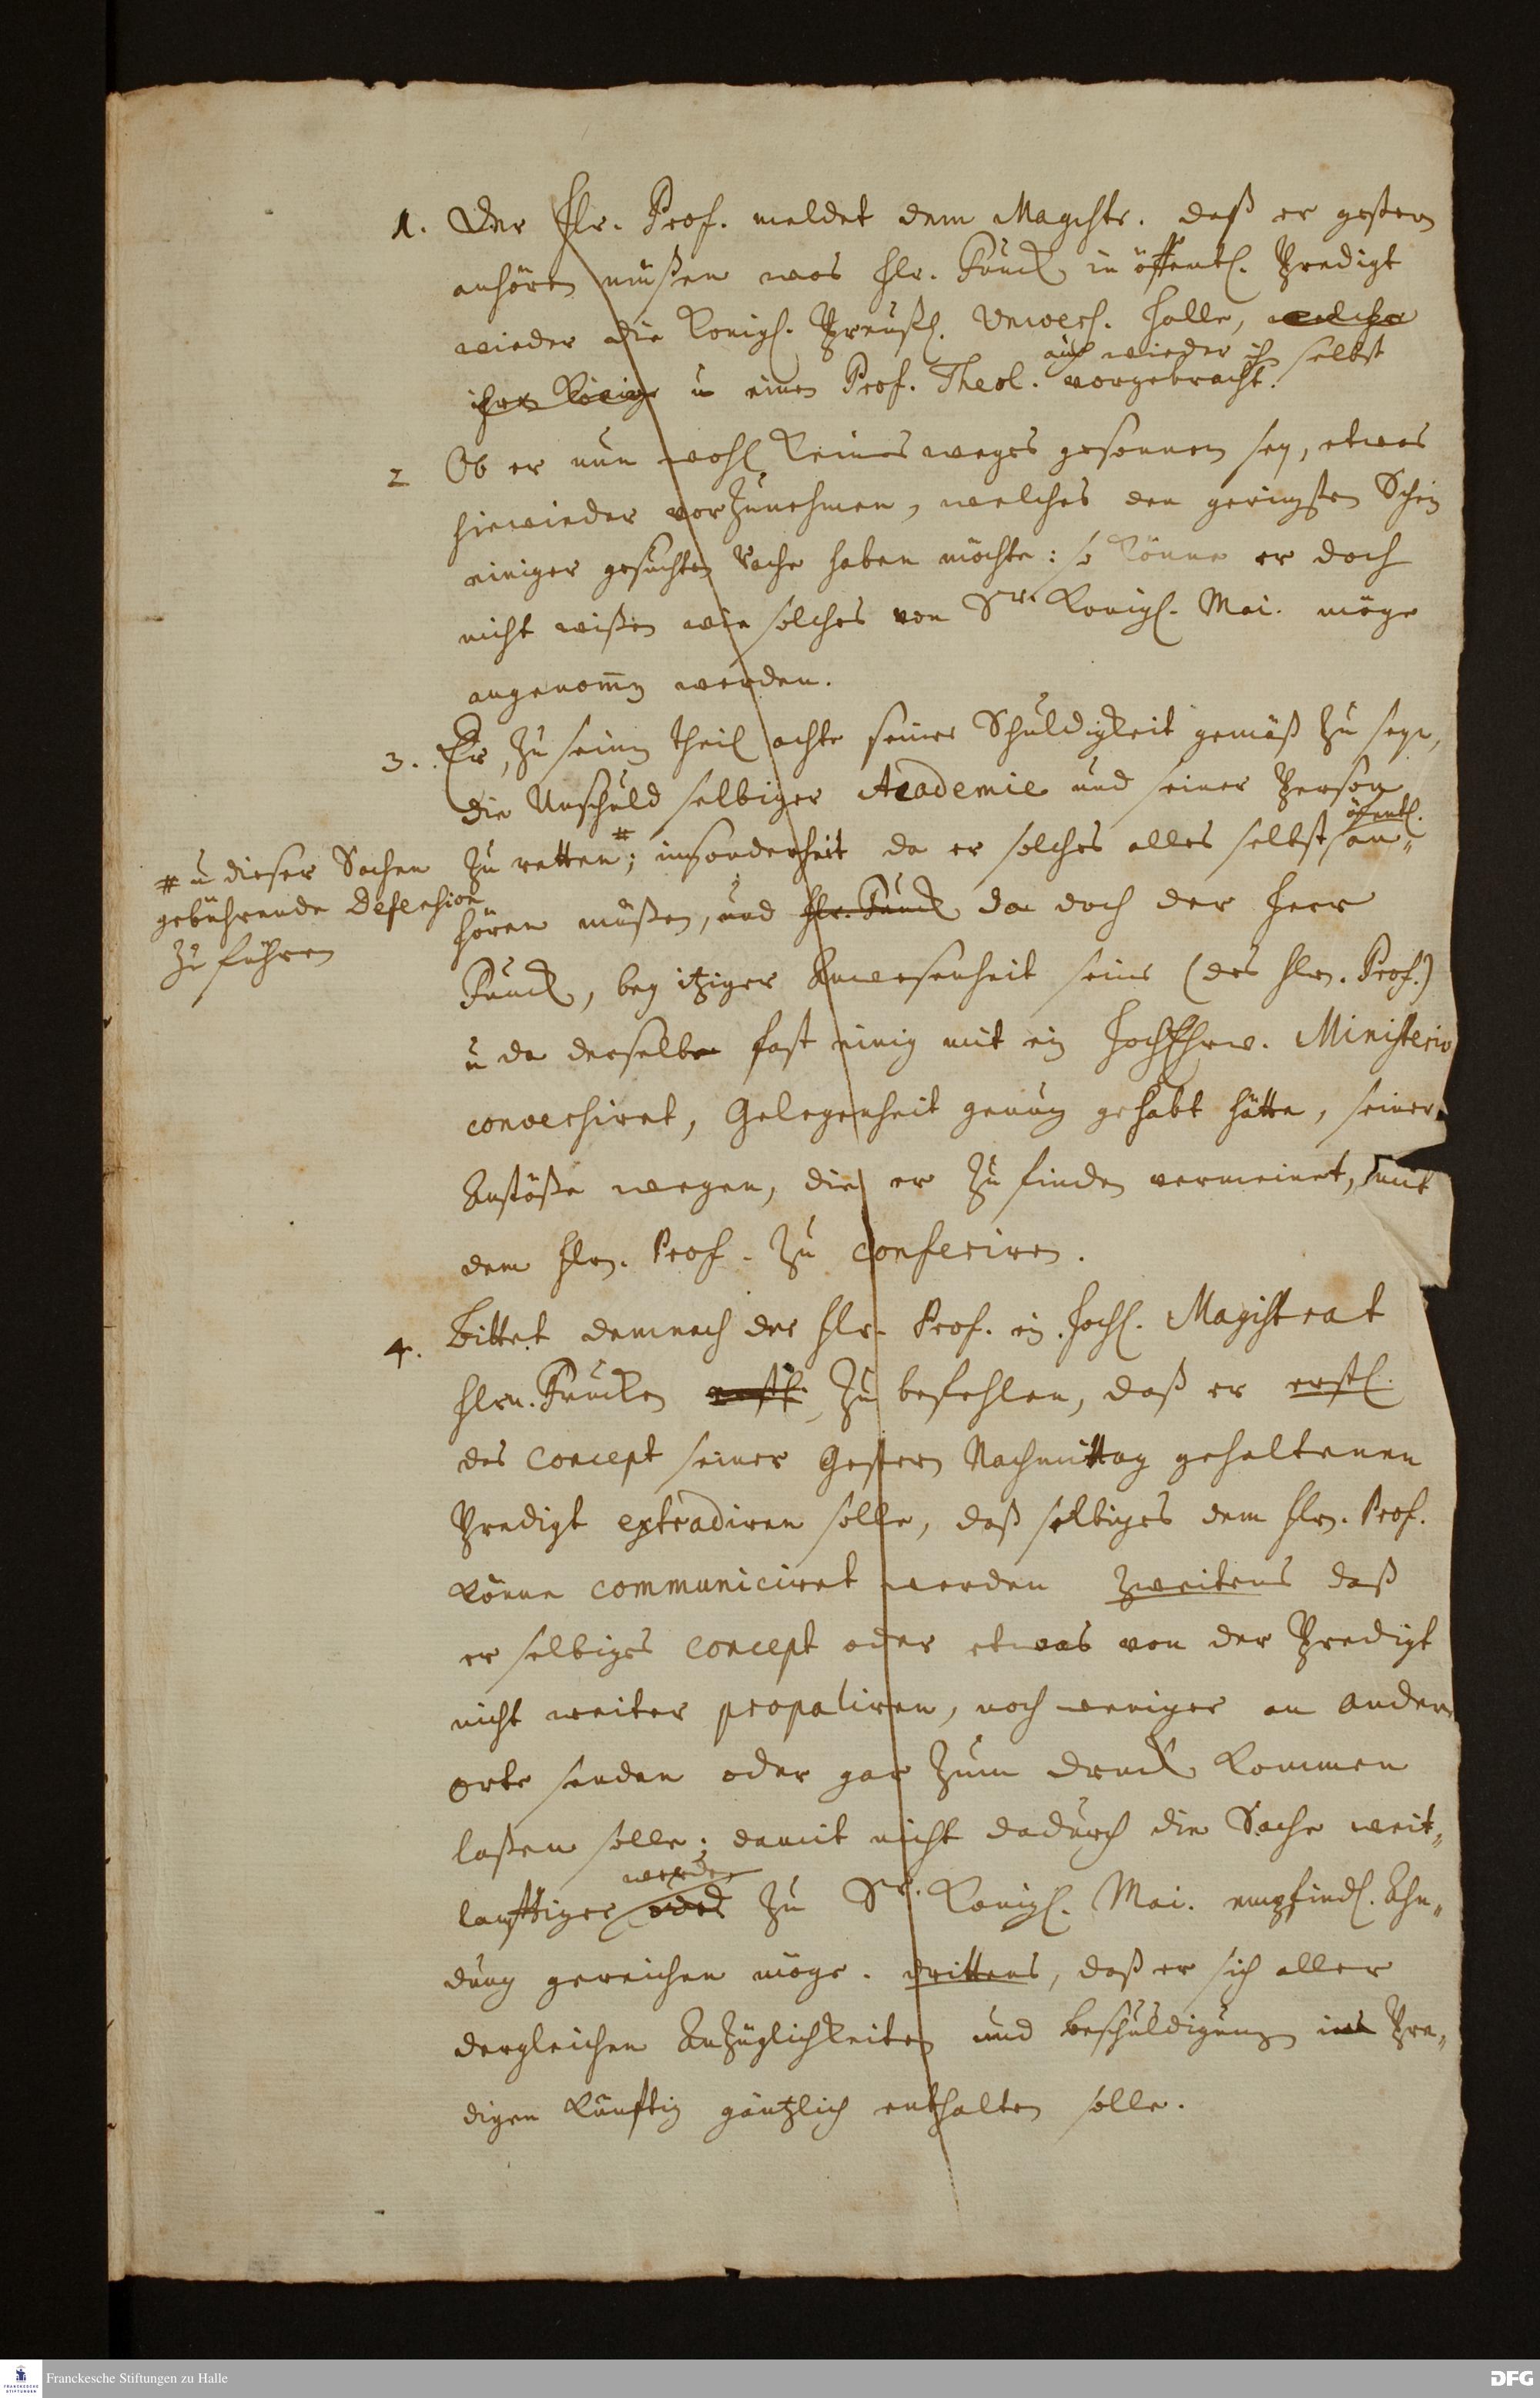 1. Der Hr. Prof. meldet dem Magistr. daß er gestern
anhören müßen was Hr. Funck in öffentl. Predigt
wieder die Königl. Preußl. Univers. Halle, welche
ihren König u einen Prof. Theol. auch wieder ihn selbst vorgebracht.
2 Ob er nun wohl keines weges gesonnen sey, etwas
hiewieder vorzunehmen, welches den geringsten Schein
einiger gesuchten Rache haben möchte: so könne er doch
nicht wißen wie solches von Sr. Königl. Mai. möge
angenomen werden.
3. Er, zu seinem theil achte seiner Schuldigkeit gemäß zu seyn,
die Unschuld selbiger Academie und seiner Person
zu retten #; insonderheit da er solches alles selbst öffentl. an„
# u dieser Sachen
gebührende Defension
zu führen
hören müßen, und Hr. Funck da doch der Herr
Funck, bey itziger Anwesenheit seiner (des Hrn. Prof.)
u da derselbe fast einig mit ein HochEhrw. Ministerio
conversiret, Gelegenheit genung gehabt hätte, seiner
Anstöße wegen, die er zu finden vermeinet, mit
dem Hrn. Prof. zu conferiren.
4. Bittet demnach der Hr. Prof. ein Hochl. Magistrat
Hrn. Funcken erstl. zu befehlen, daß er erstl.
das Concept seiner Gestern Nachmittag gehaltenen
Predigt extradiren solle, daß selbiges dem Hrn. Prof.
könne communiciret werden zweitens daß
er selbiges Concept oder etwas von der Predigt
nicht weiter propaliren, noch weniger an andere
orte senden oder gar zum druck kommen
laßen solle; damit nicht dadurch die Sache weit„
läufftiger werde oder zu Sr. Königl. Mai. empfindl. Ahn„
dung gereichen möge. drittens, daß er sich aller
dergleichen Anzüglichkeiten und Beschuldigung im Pre„
digen künftig gäntzlich enthalten solle.
Franckesche Stiftungen zu Halle
DFG